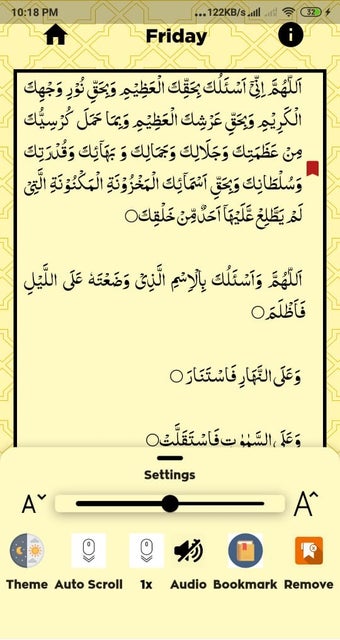 10:18 PM ...122KB/s 32
Friday
اَللّٰهُمَّ اِنِّيْٓ اَسْئَلُكَ بِحَقِّكَ الْعَظِيْمِ وَبِحَقِّ نُوْرِ وَجْهِكَ
الْكَرِيْمِ وَبِحَقِّ عَرْشِكَ الْعَظِيْمِ وَبِمَا حَمَلَ كُرْسِيُّكَ
مِنْ عَظَمَتِكَ وَجَلَالِكَ وَجَمَالِكَ وَ بَهَائِكَ وَقُدْرَتِكَ
وَسُلْطَانِكَ وَبِحَقِّ اَسْمَائِكَ الْمَخْزُوْنَةِ الْمَكْنُوْنَةِ الَّتِيْ
لَمْ يَطَّلِعْ عَلَيْهَا اَحَدٌ مِّنْ خَلْقِكَ○
اَللّٰهُمَّ وَاَسْئَلُكَ بِالْاِسْمِ الَّذِيْ وَضَعْتَهٗ عَلَى اللَّيْلِ
فَاَظْلَمَ○
وَعَلَى النَّهَارِ فَاسْتَنَارَ○
وَعَلَى السَّمٰوٰتِ فَاسْتَقَلَّتْ○
Settings
A A
Theme Auto Scroll 1x Audio Bookmark Remove